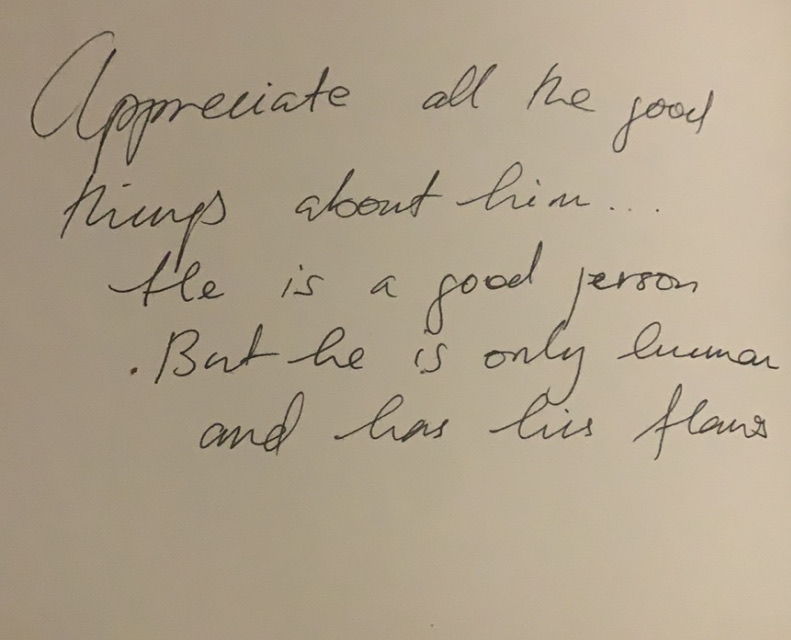 Appreciate all the good
things about him...
He is a good person
. But he is only human
and has his flaws